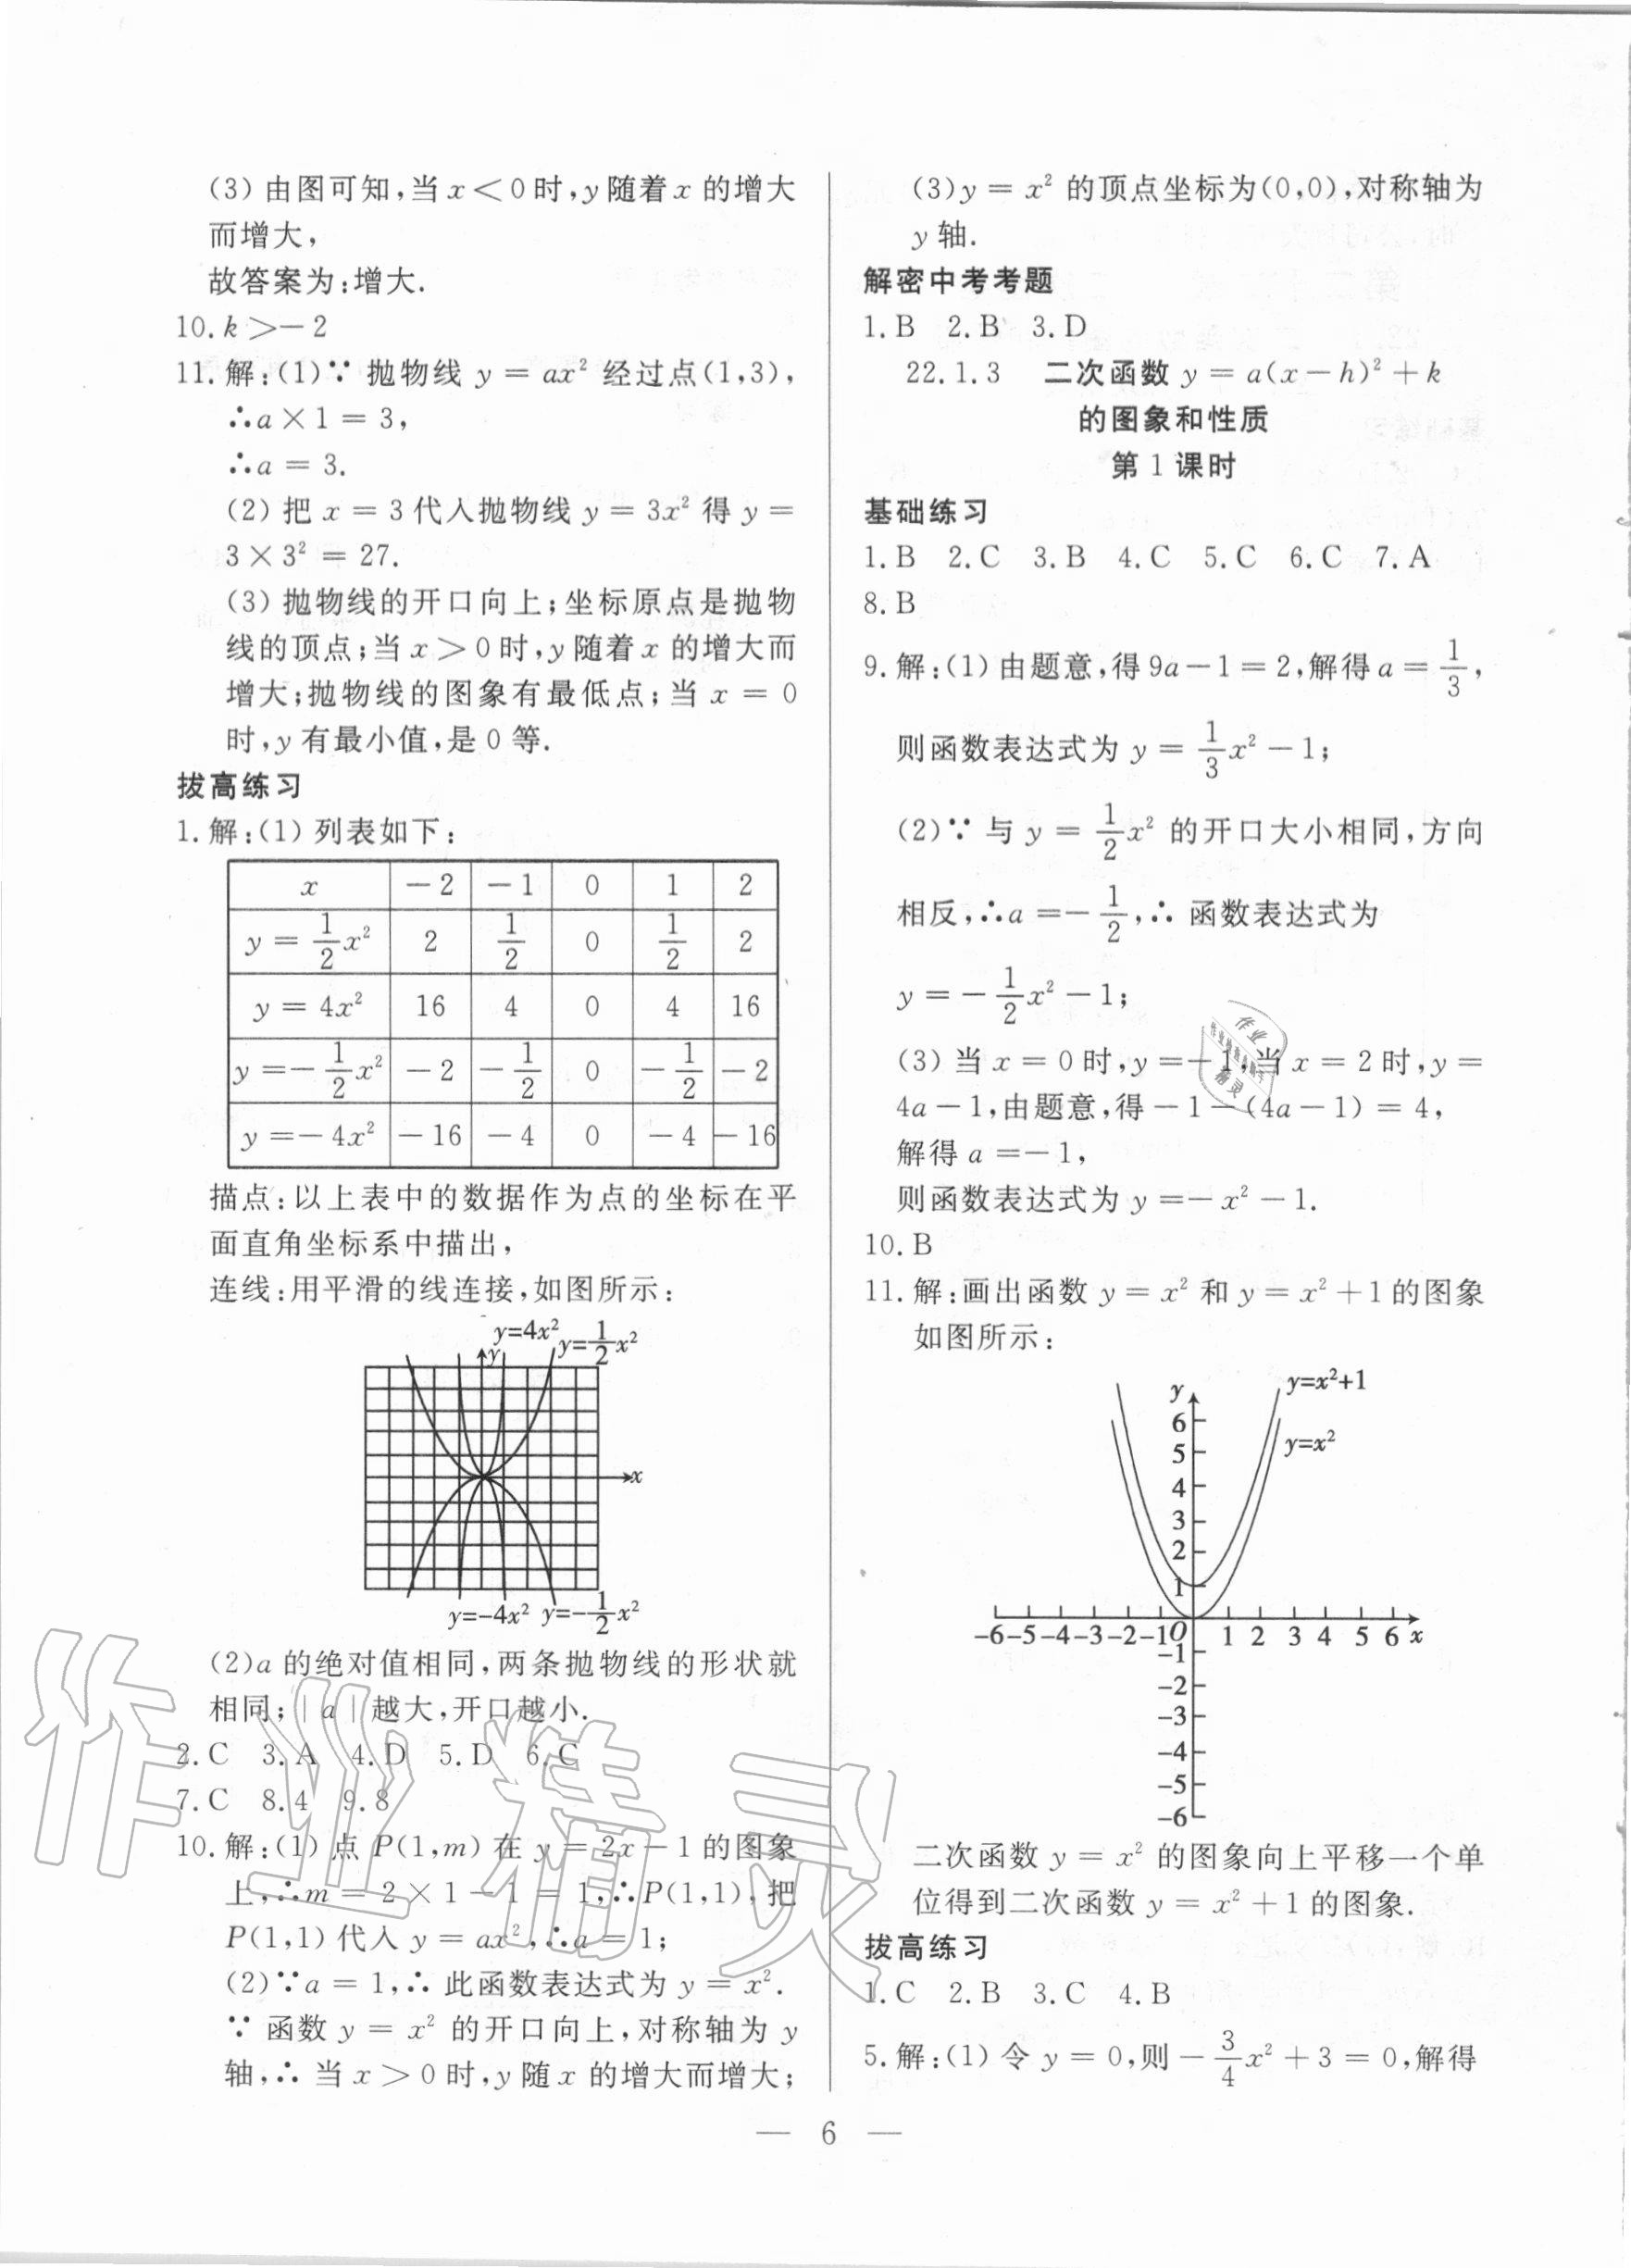 (3) 由图可知,当 x＜0时,y随着x 的增大
而增大,
故答案为:增大.
10. k＞－2
11. 解:(1)∵ 抛物线 y = ax² 经过点(1,3),
∴a×1 = 3,
∴a = 3.
(2) 把 x = 3代入抛物线 y = 3x² 得 y =
3×3² = 27.
(3) 抛物线的开口向上;坐标原点是抛物
线的顶点;当 x＞0时,y随着x 的增大而
增大;抛物线的图象有最低点;当 x = 0
时,y有最小值,是0等.
拔高练习
1. 解:(1) 列表如下:
x －2 －1 0 1 2
y = 1/2 x² 2 1/2 0 1/2 2
y = 4x² 16 4 0 4 16
y =－1/2 x² －2 －1/2 0 －1/2 －2
y =－4x² －16 －4 0 －4 －16
描点:以上表中的数据作为点的坐标在平
面直角坐标系中描出,
连线:用平滑的线连接,如图所示:
y=4x² y=1/2 x²
y
x
y=-4x² y=-1/2 x²
(2)a 的绝对值相同,两条抛物线的形状就
相同;|a|越大,开口越小.
2. C 3. A 4. D 5. D 6. C
7. C 8. 4 9. 8
10. 解:(1) 点 P(1,m) 在 y = 2x－1的图象
上,∴m = 2×1－1 = 1,∴P(1,1),把
P(1,1) 代入 y = ax²,∴a = 1;
(2)∵a = 1,∴ 此函数表达式为 y = x².
∵ 函数 y = x² 的开口向上,对称轴为 y
轴,∴ 当 x＞0时,y随x 的增大而增大;
(3)y = x² 的顶点坐标为(0,0),对称轴为
y轴.
解密中考考题
1. B 2. B 3. D
22.1.3 二次函数 y = a(x－h)²＋k
的图象和性质
第 1 课时
基础练习
1. B 2. C 3. B 4. C 5. C 6. C 7. A
8. B
9. 解:(1) 由题意,得9a－1＝2,解得a = 1/3,
则函数表达式为 y = 1/3 x²－1;
(2)∵ 与 y = 1/2 x² 的开口大小相同,方向
相反,∴a =－1/2,∴ 函数表达式为
y =－1/2 x²－1;
(3) 当 x = 0时,y =－1,当 x = 2时,y =
4a－1,由题意,得－1－(4a－1) = 4,
解得 a =－1,
则函数表达式为 y =－x²－1.
10. B
11. 解:画出函数 y = x² 和 y = x²＋1的图象
如图所示:
y=x²+1
y=x²
y
6
5
4
3
2
1
-6 -5 -4 -3 -2 -1 O 1 2 3 4 5 6 x
-1
-2
-3
-4
-5
-6
二次函数 y = x² 的图象向上平移一个单
位得到二次函数 y = x²＋1的图象.
拔高练习
1. C 2. B 3. C 4. B
5. 解:(1) 令 y = 0,则－3/4 x²＋3 = 0,解得
— 6 —
作业精灵